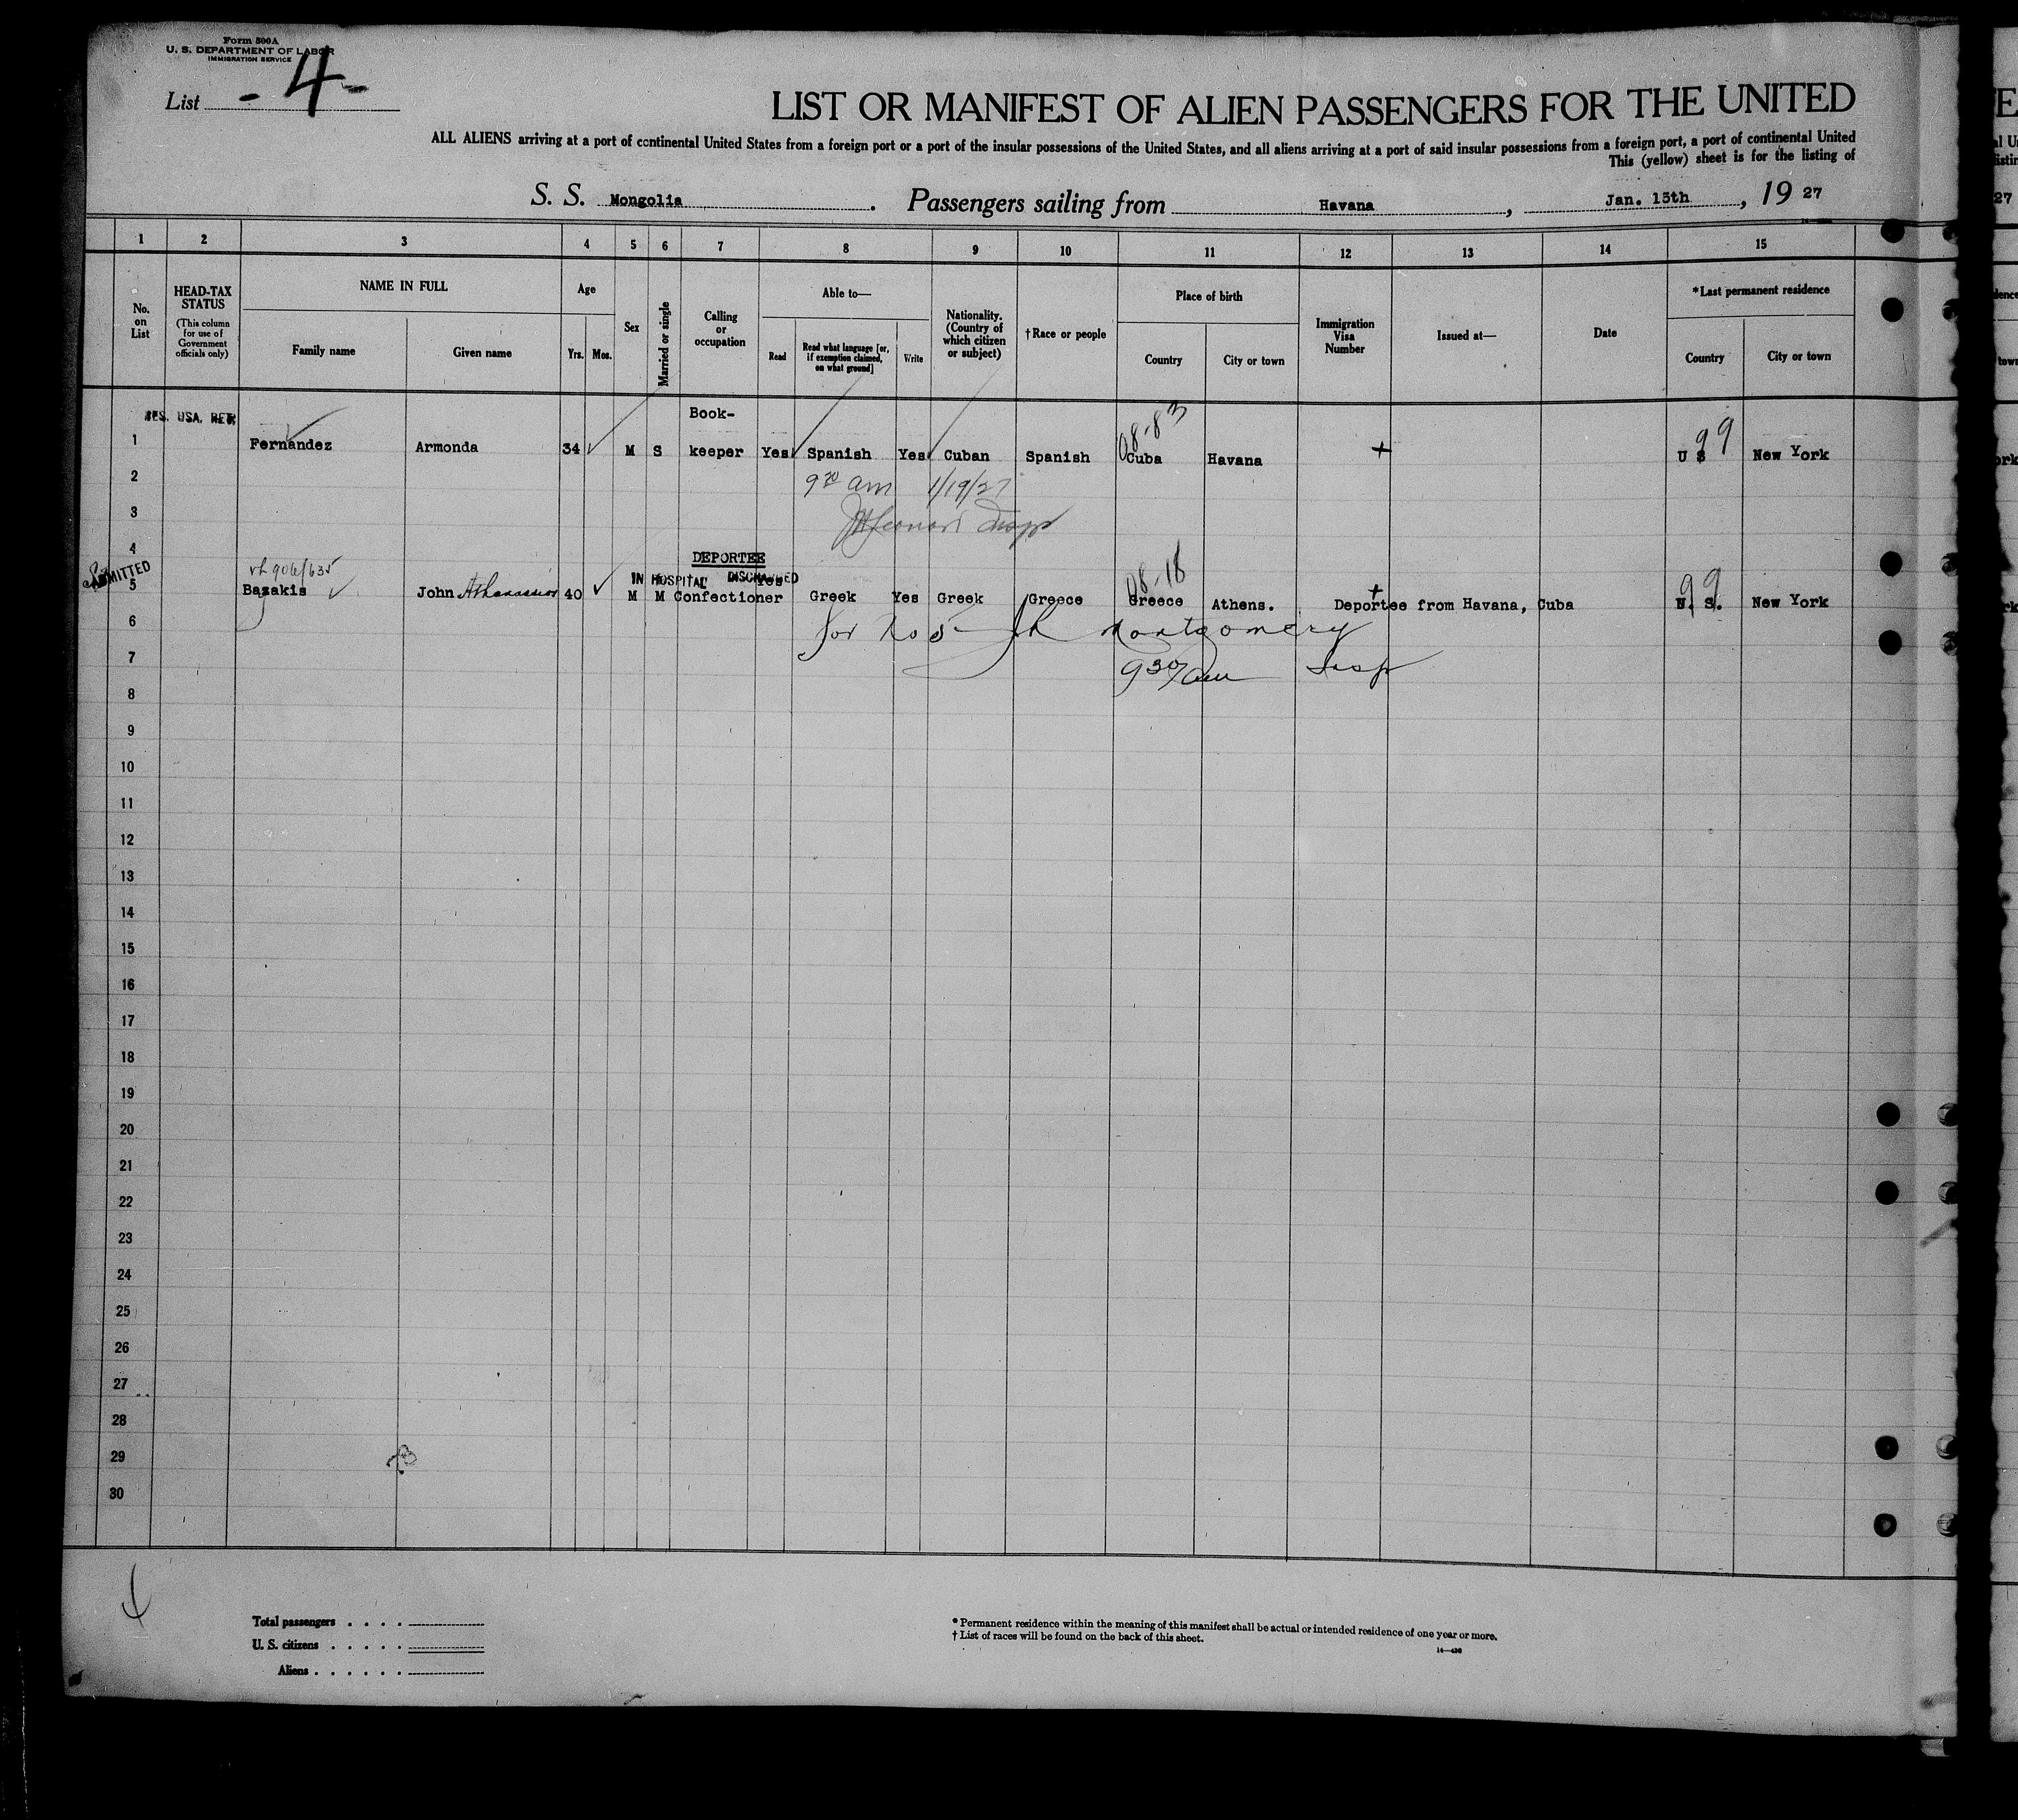 Form 500A
U. S. DEPARTMENT OF LABOR
IMMIGRATION SERVICE
List - 4 -
LIST OR MANIFEST OF ALIEN PASSENGERS FOR THE UNITED
ALL ALIENS arriving at a port of continental United States from a foreign port or a port of the insular possessions of the United States, and all aliens arriving at a port of said insular possessions from a foreign port, a port of continental United
This (yellow) sheet is for the listing of
S. S. Mongolia. Passengers sailing from Havana, Jan. 15th, 19 27
1 2 3 4 5 6 7 8 9 10 11 12 13 14 15
No. on List
HEAD-TAX STATUS
(This column for use of Government officials only)
NAME IN FULL
Family name Given name
Age
Yrs. Mos.
Sex
Married or single
Calling or occupation
Able to—
Read Read what language [or, if exemption claimed, on what ground] Write
Nationality. (Country of which citizen or subject)
†Race or people
Place of birth
Country City or town
Immigration Visa Number
Issued at—
Date
*Last permanent residence
Country City or town
RES. USA. RET.
Book-
08-83
99
1 Fernandez Armonda 34 M S keeper Yes Spanish Yes Cuban Spanish Cuba Havana + U S New York
2 9 30 am 1/19/27
3
4
DEPORTEE
ADMITTED
IN HOSPITAL DISCHARGED
Yes
08-18
99
5 Bazakis John Athanassios 40 M M Confectioner Greek Yes Greek Greece Greece Athens. Deportee from Havana, Cuba U. S. New York
6 for No 5 Montgomery
7 9 30/am Insp
8
9
10
11
12
13
14
15
16
17
18
19
20
21
22
23
24
25
26
27
28
29
30
Total passengers . . . .
U. S. citizens . . . . .
Aliens . . . . . .
* Permanent residence within the meaning of this manifest shall be actual or intended residence of one year or more.
† List of races will be found on the back of this sheet.